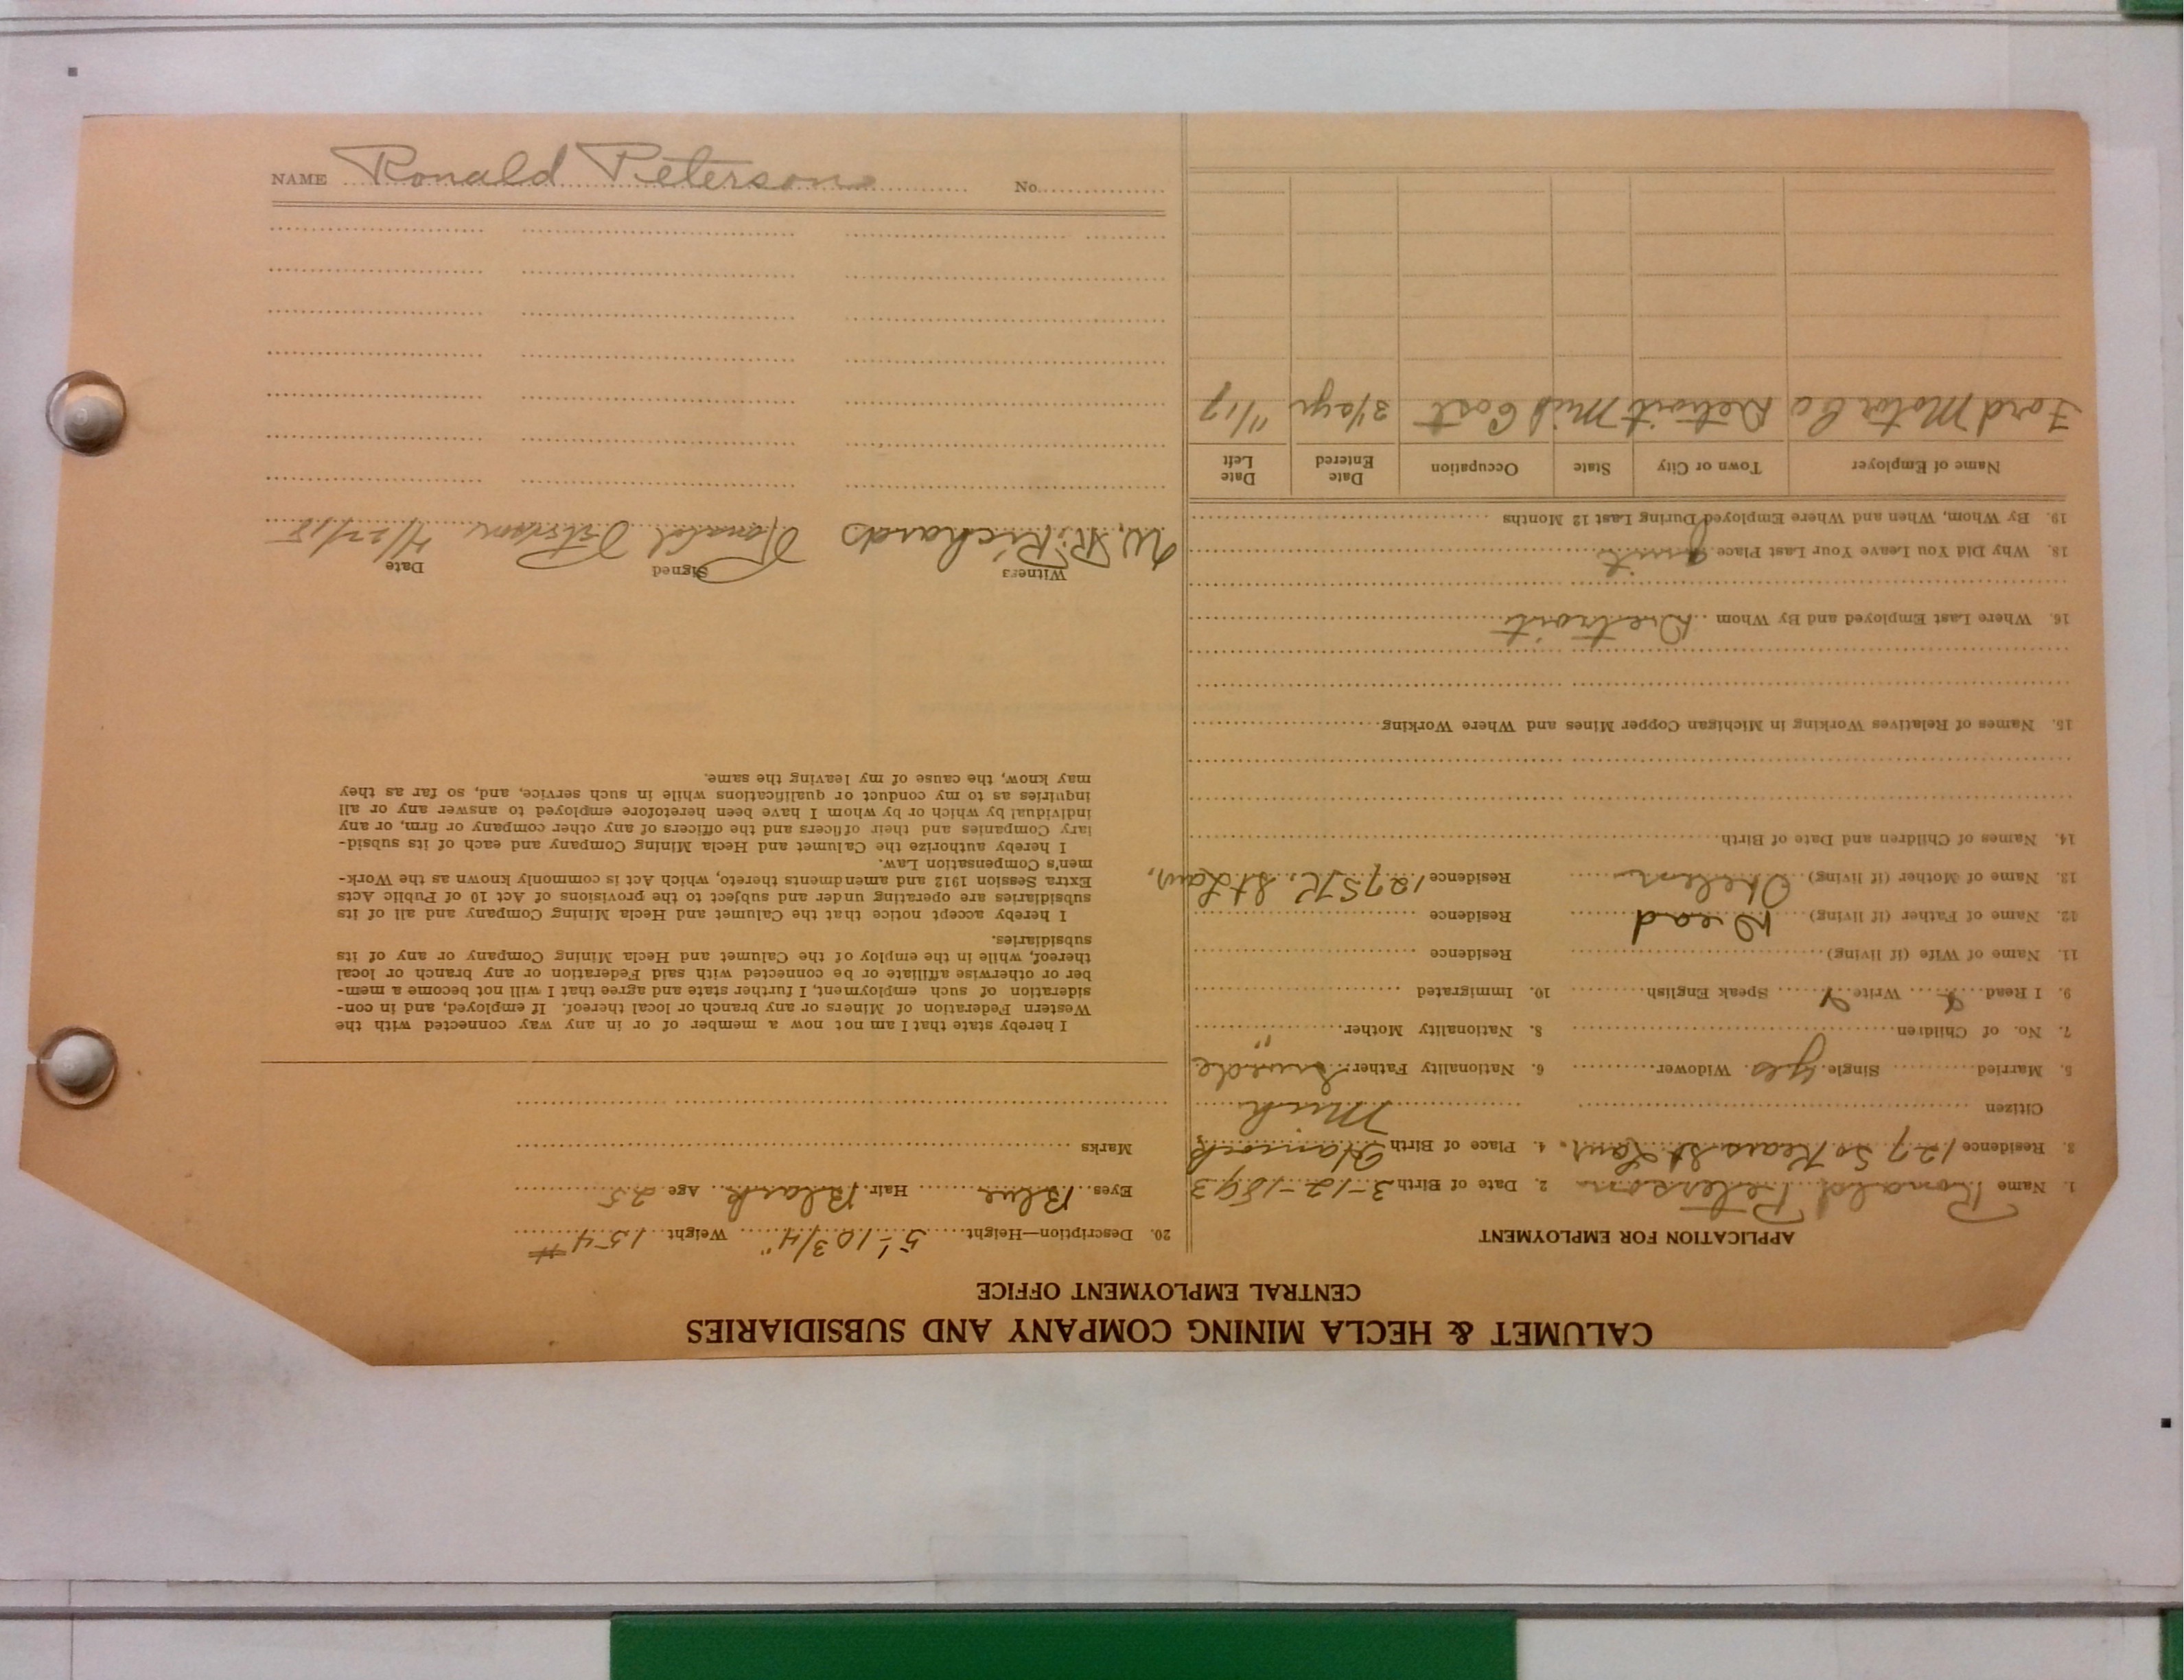 CALUMET & HECLA MINING COMPANY AND SUBSIDIARIES
CENTRAL EMPLOYMENT OFFICE
APPLICATION FOR EMPLOYMENT
1. Name Ronald Peterson 2. Date of Birth 3-12-1893
3. Residence 127 So Kears. St Laur. 4. Place of Birth Hancock
Citizen Mich
5. Married Single yes. Widower 6. Nationality Father Swede
7. No. of Children 8. Nationality Mother "
9. I Read Write Speak English 10. Immigrated
11. Name of Wife (if living) Residence
12. Name of Father (if living) Dead Residence
13. Name of Mother (if living) Helen Residence 127 S. K. St Laur,
14. Names of Children and Date of Birth
15. Names of Relatives Working in Michigan Copper Mines and Where Working
16. Where Last Employed and By Whom Detroit
18. Why Did You Leave Your Last Place quit
19. By Whom, When and Where Employed During Last 12 Months
Name of Employer Town or City State Occupation Date Entered Date Left
Ford Motor Co Detroit Mich 3 1/2 yr 11/17
20. Description—Height 5'-10 3/4" Weight 154 #
Eyes Blue Hair Black Age 25
Marks
I hereby state that I am not now a member of or in any way connected with the
Western Federation of Miners or any branch or local thereof. If employed, and in con-
sideration of such employment, I further state and agree that I will not become a mem-
ber or otherwise affiliate or be connected with said Federation or any branch or local
thereof, while in the employ of the Calumet and Hecla Mining Company or any of its
subsidiaries.
I hereby accept notice that the Calumet and Hecla Mining Company and all of its
subsidiaries are operating under and subject to the provisions of Act 10 of Public Acts
Extra Session 1912 and amendments thereto, which Act is commonly known as the Work-
men's Compensation Law.
I hereby authorize the Calumet and Hecla Mining Company and each of its subsid-
iary Companies and their officers and the officers of any other company or firm, or any
individual by which or by whom I have been heretofore employed to answer any or all
inquiries as to my conduct or qualifications while in such service, and, so far as they
may know, the cause of my leaving the same.
Witness Signed Date
W. R. Richards Ronald Peterson 4/27/18
NAME Ronald Peterson No.